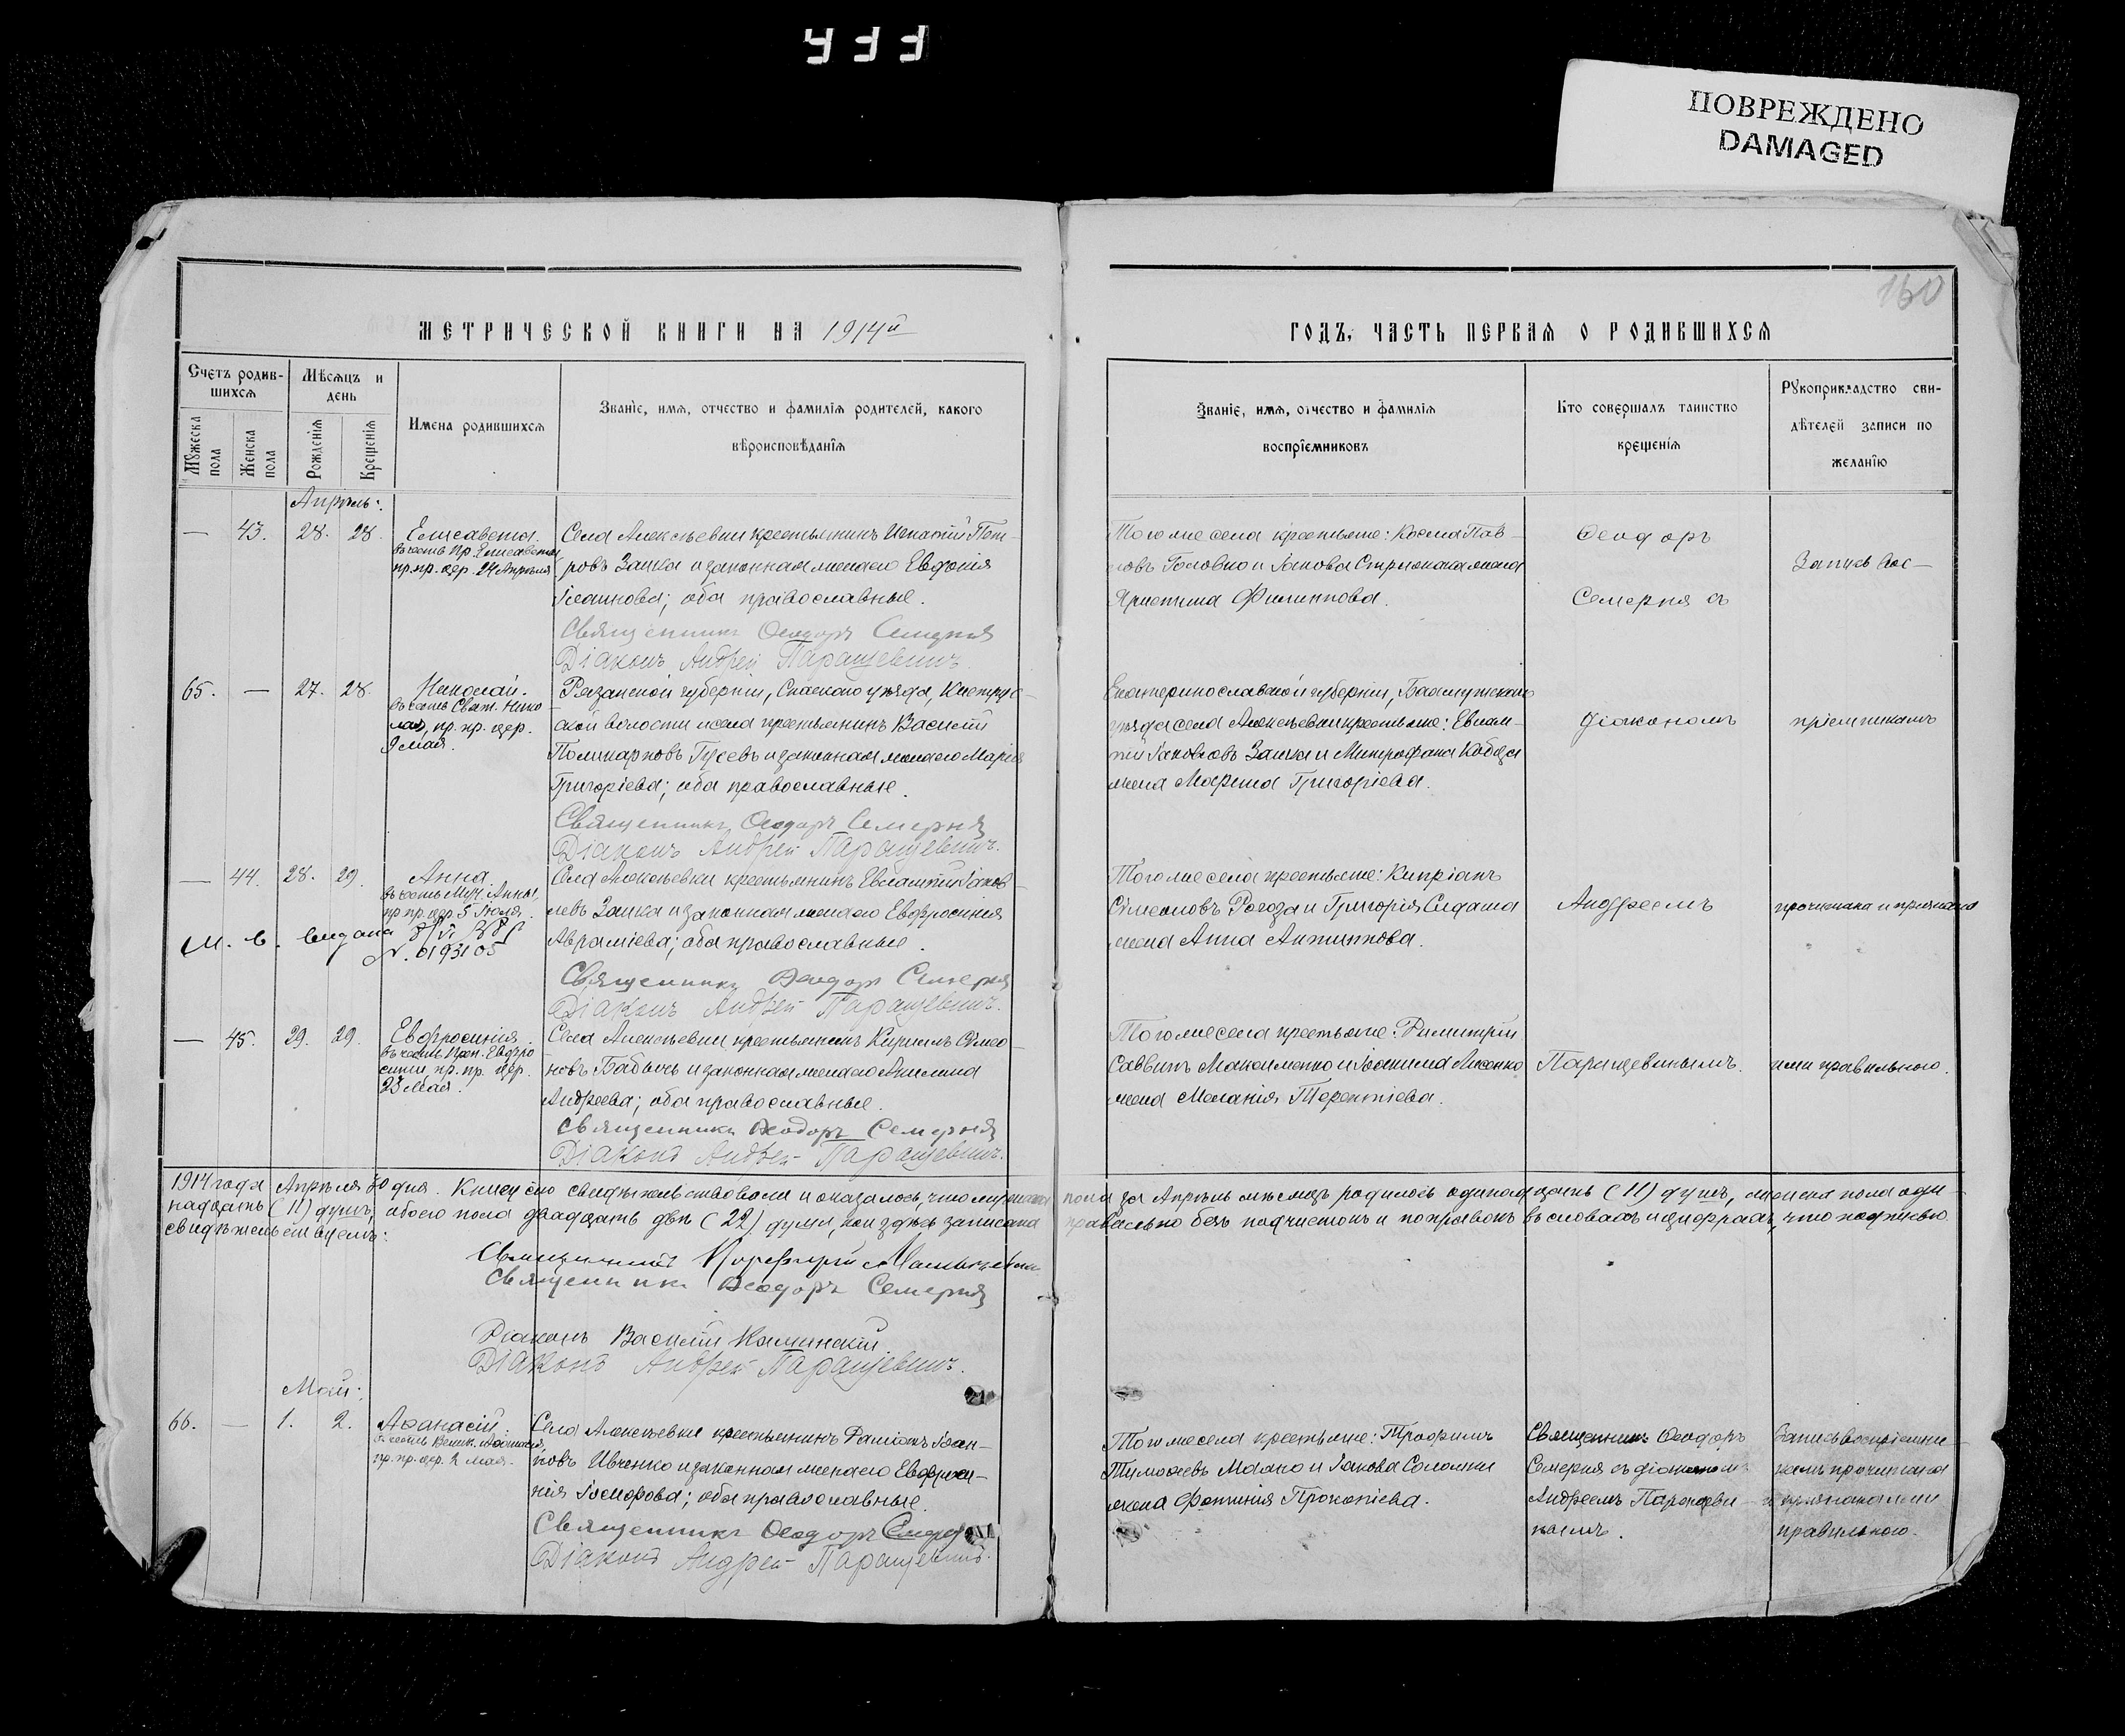 ПОВРЕЖДЕНО
DAMAGED
160
МЕТРИЧЕСКОЙ КНИГИ НА 1914й
ГОДЪ, ЧАСТЬ ПЕРВАЯ О РОДИВШИХСЯ
Счетъ родив-
шихся
Мужеска пола
Женска пола
Мѣсяцъ и
день
Рожденїя
Крещенїя
Имена родившихся
Званїе, имя, отчество и фамилїя родителей, какого
вѣроисповѣданїя
Званїе, имя, отчество и фамилїя
воспрїемниковъ
Кто совершалъ таинство
крещенїя
Рукоприкладство сви-
дѣтелей записи по
желанїю
Апрѣль:
— 43. 28. 28.
Елисавета.
въ честь Пр. Елисаветы,
пр. пр. цер. 24 Апрѣля
Села Алексѣевки крестьянинъ Игнатій Пет-
ровъ Заика и законная жена его Евдокія
Іоаннова; оба православные.
Священникъ Ѳеодоръ Семерня
Діаконъ Андрей Паращевинъ.
Того же села крестьяне: Косма Пав-
ловъ Головко и Іакова жена
Христина Филиппова.
Ѳеодоръ
Семерня съ
Запись вос-
65. — 27. 28.
Николай.
въ честь Свят. Нико
лая, пр. пр. цер.
9 мая.
Рязанской губерніи, Спасскаго уѣзда,
ской волости и села крестьянинъ Василій
Поликарповъ Гусевъ и законная жена его Марія
Григоріева; оба православные.
Священникъ Ѳеодоръ Семерня
Діаконъ Андрей Паращевинъ.
Екатеринославской губерніи, Бахмутскаго
уѣзда села Алексѣевки крестьяне: Евлам-
пій Іаковлевъ Заика и Митрофана Кобца
жена Марина Григоріева.
діакономъ
пріемникамъ
— 44. 28. 29.
Анна
въ честь Муч. Анны,
пр. пр. цер. 5 Іюля.
М. в. выдана
N. 0193105
Села Алексѣевки крестьянинъ Евлампій Іаков-
левъ Заика и законная жена его Евфросинія
Авраміева; оба православные.
Священникъ Ѳеодоръ Семерня
Діаконъ Андрей Паращевинъ.
Того же села крестьяне: Кипріанъ
Сѵмеоновъ Рогоза и Григорія Сидаша
жена Анна Антипова.
Андреемъ
прочитана и признана
— 45. 29. 29.
Евфросинія
въ честь Преп. Евфро
синіи, пр. пр. цер.
25 мая.
Села Алексѣевки крестьянинъ Кириллъ Сѵмео-
новъ Бабычъ и законная жена его Акилина
Андреева; оба православные.
Священникъ Ѳеодоръ Семерня
Діаконъ Андрей Паращевинъ.
Того же села крестьяне: Димитрій
Саввинъ Максименко и Іоакима Лисенко
жена Меланія Терентіева.
Паращевинымъ.
ими правильною.
1914 года Апрѣля 30 дня. Книгу сію свидѣтельствовали и оказалось, что мужеска пола за Апрѣль мѣсяцъ родилось одиннадцать (11) душъ, женска пола оди-
надцать (11) душъ, обоего пола двадцать двѣ (22) души, кои здѣсь записаны правильно безъ подчистокъ и поправокъ въ словахъ и цифрахъ, что подписью
свидѣтельствуемъ:
Священникъ Порфирій
Священникъ Ѳеодоръ Семерня
Діаконъ Василій Каминскій
Діаконъ Андрей Паращевинъ.
Май:
66. — 1. 2.
Аѳанасій.
въ честь Велик. Аѳанасія,
пр. пр. цер. 2 мая.
Села Алексѣевки крестьянинъ Даміанъ Іоан-
новъ Ивченко и законная жена его Евфроси-
нія Исидорова; оба православные.
Священникъ Ѳеодоръ
Діаконъ Андрей Паращевинъ.
Того же села крестьяне: Трофимъ
Тимоѳеевъ и Іакова
жена Фотинія Прокопіева.
Священникъ Ѳеодоръ
Семерня съ діакономъ
Андреемъ Паращеви-
нымъ.
Запись воспріемни-
камъ прочитана
и признана ими
правильною.